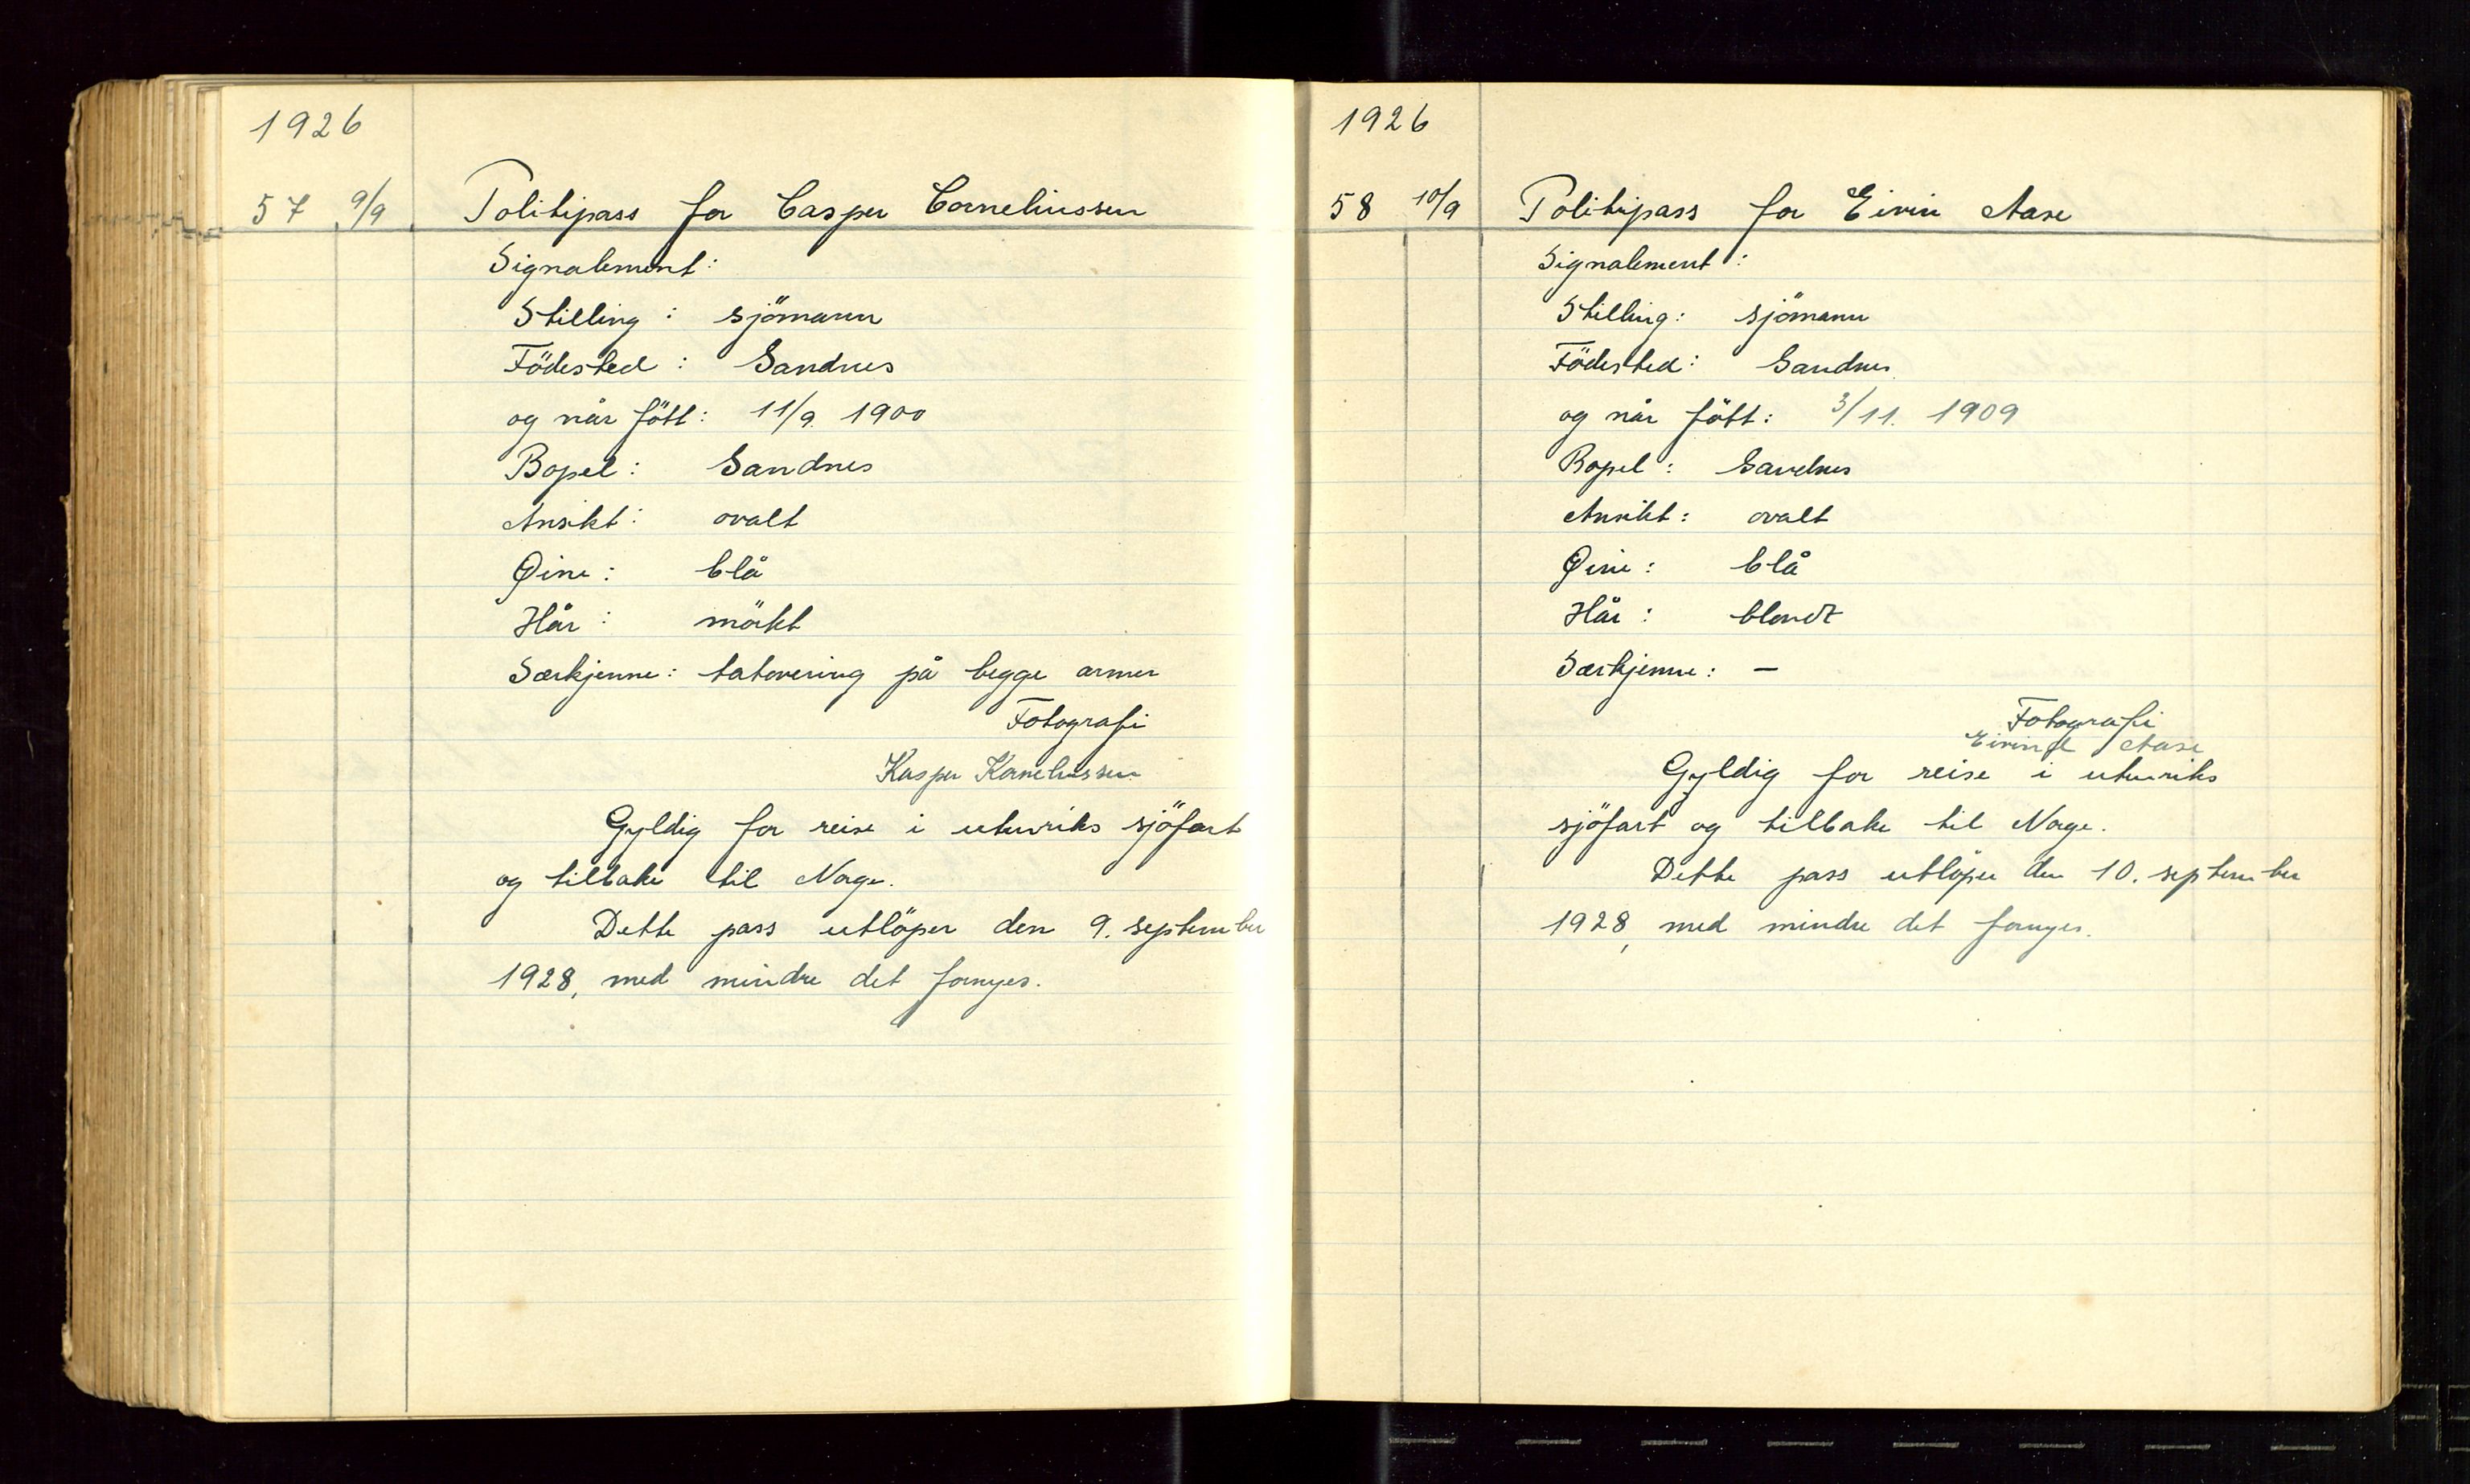 1926
57 9/9 Politipass for Casper Corneliussen
Signalement:
Stilling: sjömann
Födested: Sandnes
og når födt: 11/9 1900
Bopel: Sandnes
Ansikt: ovalt
Øine: blå
Hår: mörkt
Særkjenne: tatovering på begge armer
Fotografi
Kasper Korneliussen
Gyldig for reise i utenriks sjöfart
og tilbake til Norge.
Dette pass utlöper den 9. september
1928, med mindre det fornyes.
1926
58 10/9 Politipass for Eivin Aase
Signalement:
Stilling: sjömann
Födested: Sandnes
og når födt: 3/11. 1909
Bopel: Sandnes
Ansikt: ovalt
Øine: blå
Hår: blondt
Særkjenne: —
Fotografi
Eivind Aase
Gyldig for reise i utenriks
sjöfart og tilbake til Norge.
Dette pass utlöper den 10. september
1928, med mindre det fornyes.